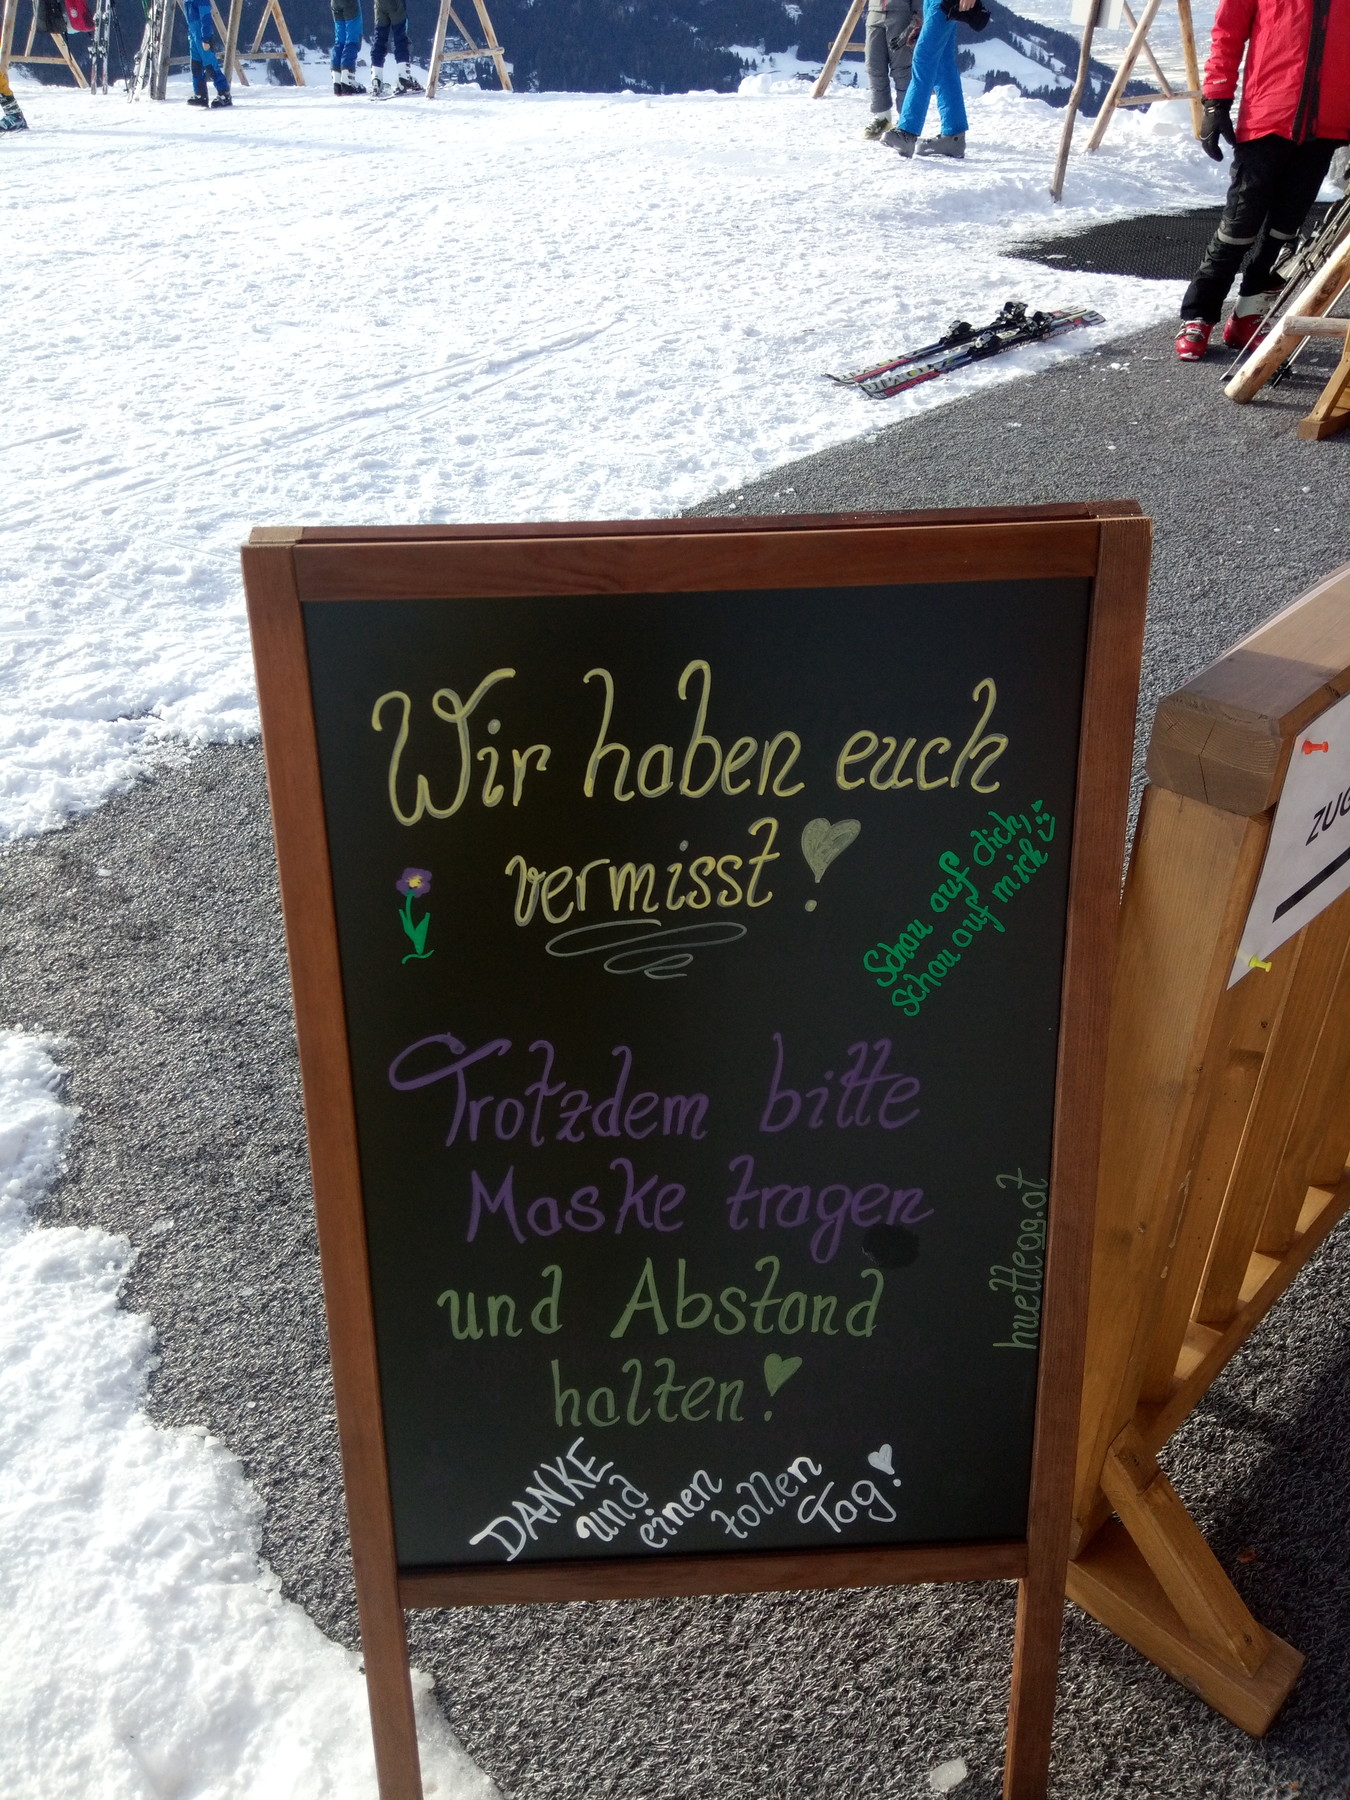 Wir haben euch
vermisst!
Schau auf dich,
schau auf mich
Trotzdem bitte
Maske tragen
und Abstand
halten!
huetteag.at
DANKE und einen tollen Tag!
ZUG